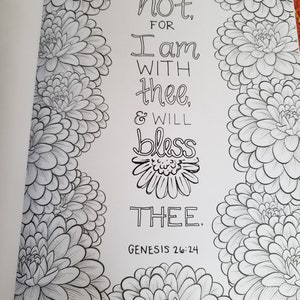 not, FOR
I am
WITH
thee,
& WILL
bless
THEE.
GENESIS 26:24